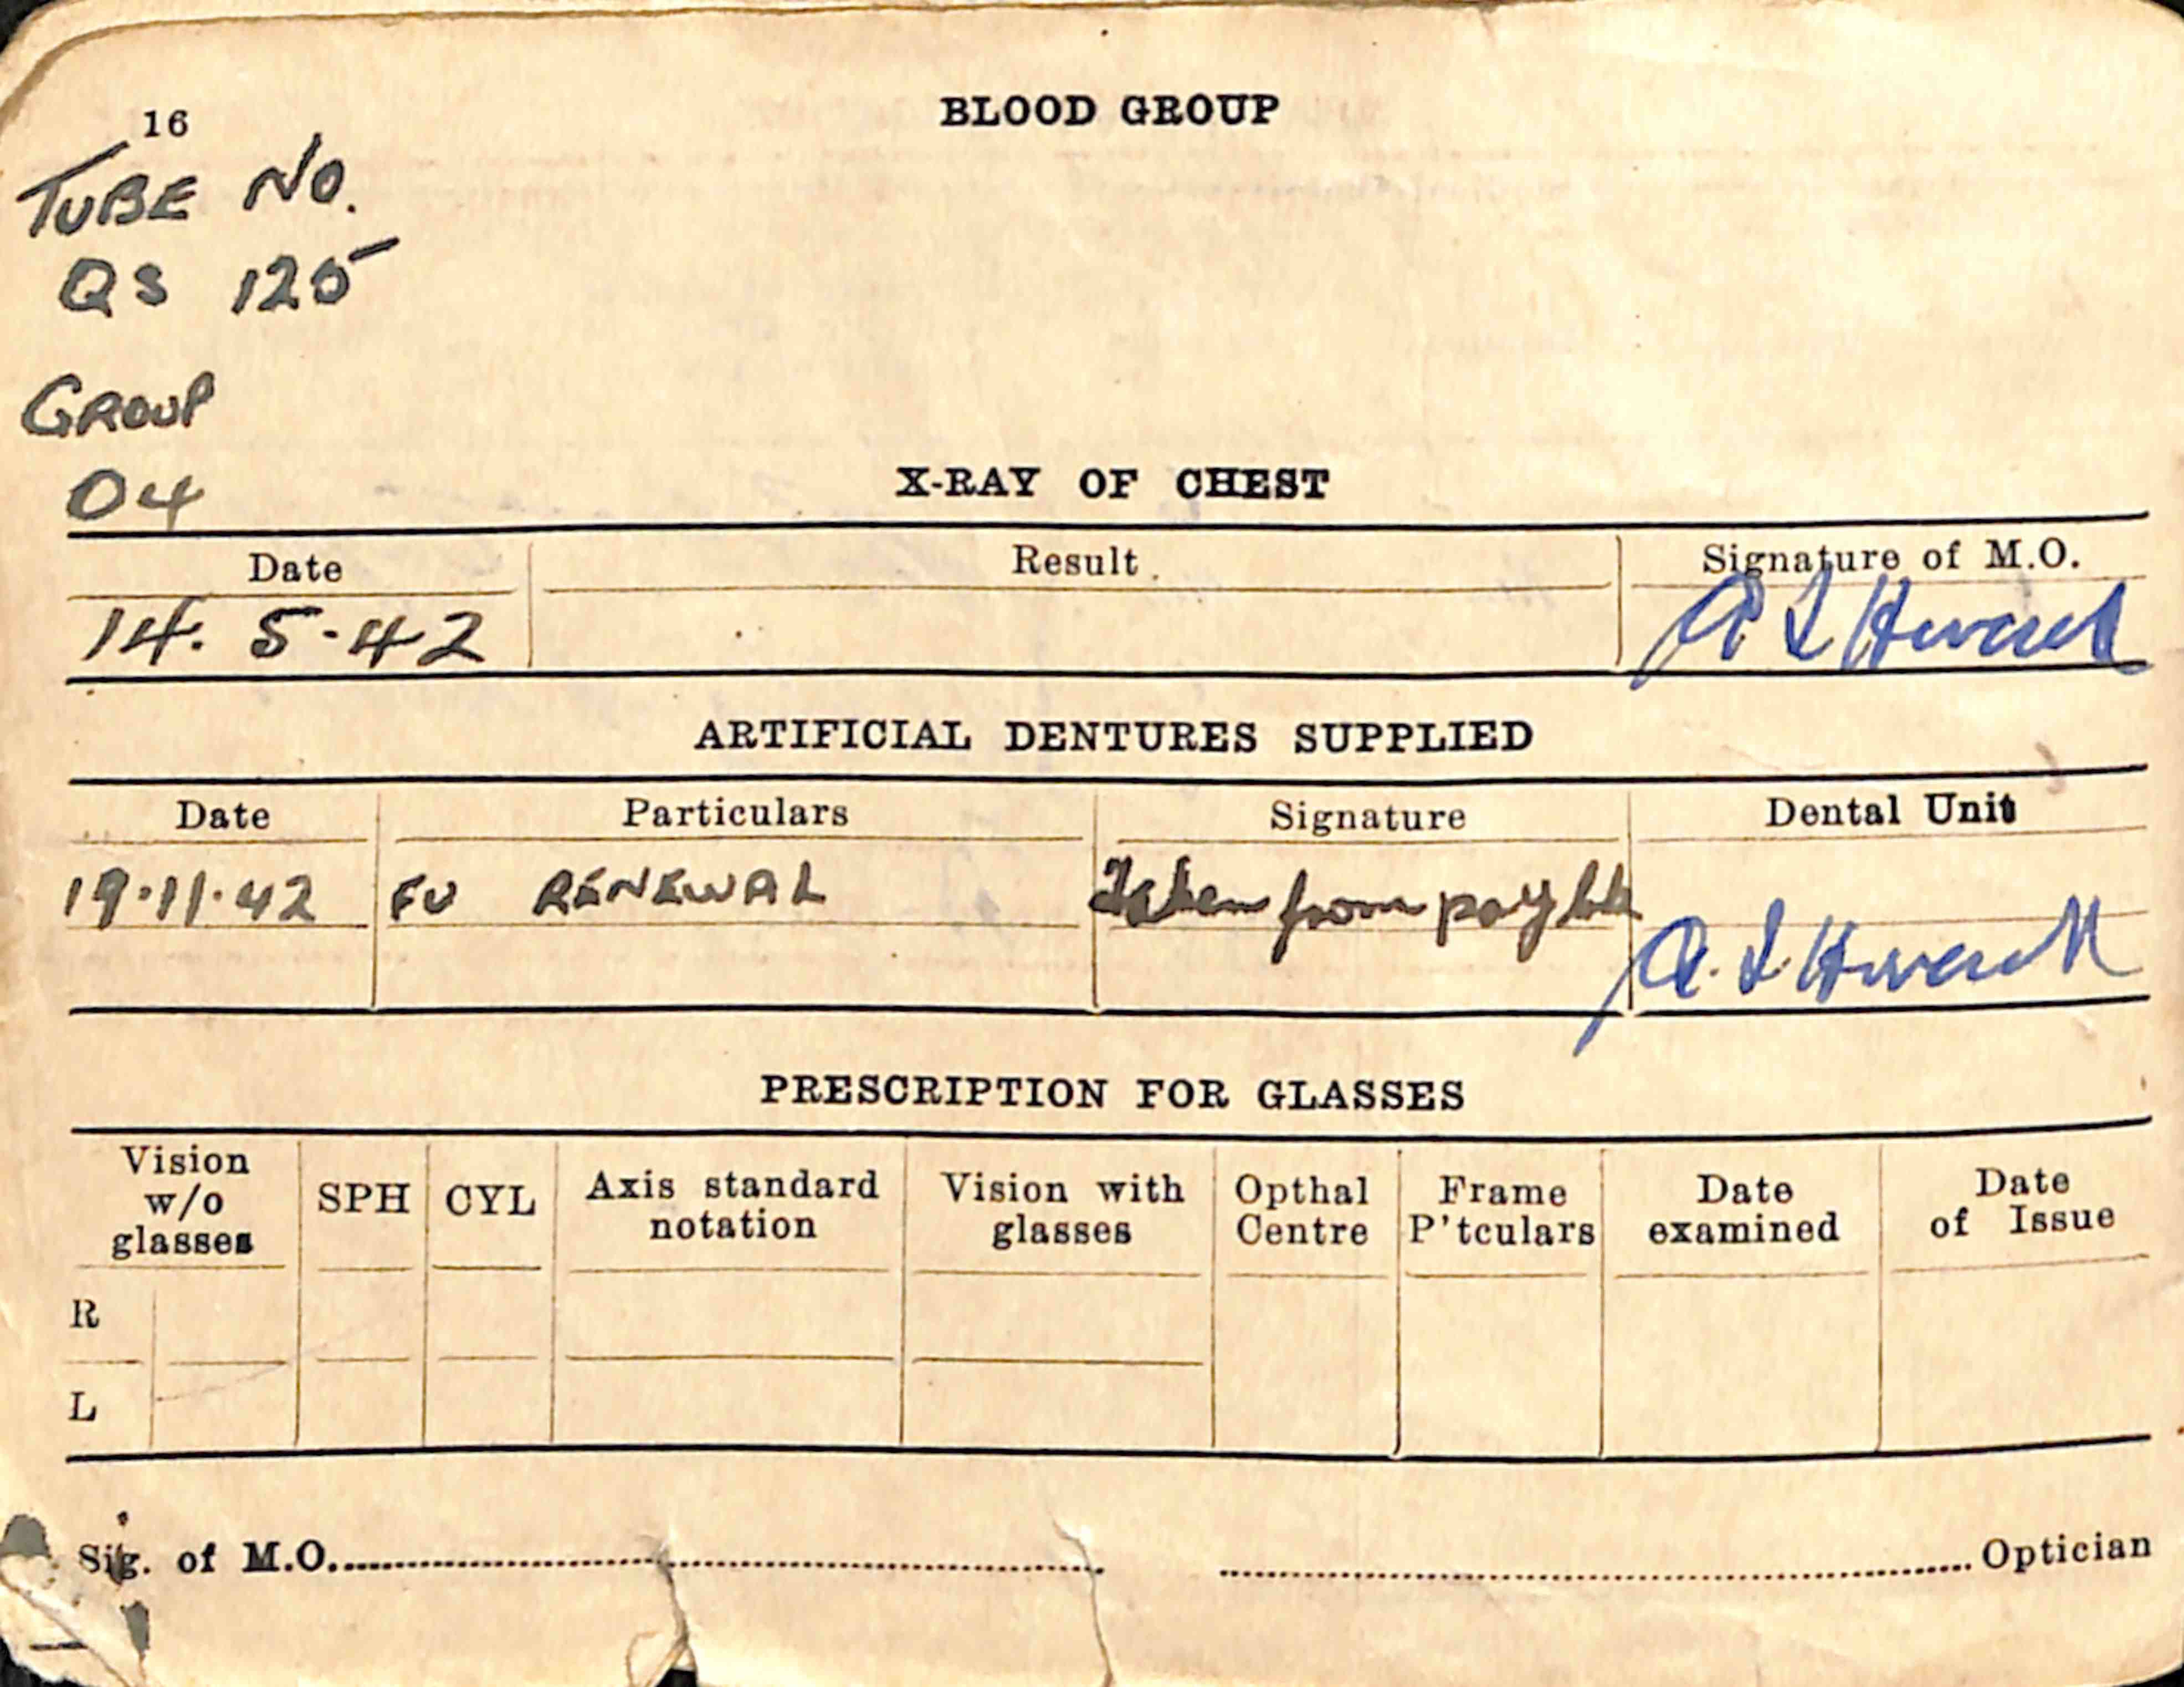 16
BLOOD GROUP
TUBE NO.
QS 125
GROUP
O4
X-RAY OF CHEST
Date Result Signature of M.O.
14. 5-42
ARTIFICIAL DENTURES SUPPLIED
Date Particulars Signature Dental Unit
19.11.42 FU RENEWAL Taken from pay bk
PRESCRIPTION FOR GLASSES
Vision w/o glasses SPH CYL Axis standard notation Vision with glasses Opthal Centre Frame P'tculars Date examined Date of Issue
R
L
Sig. of M.O. Optician